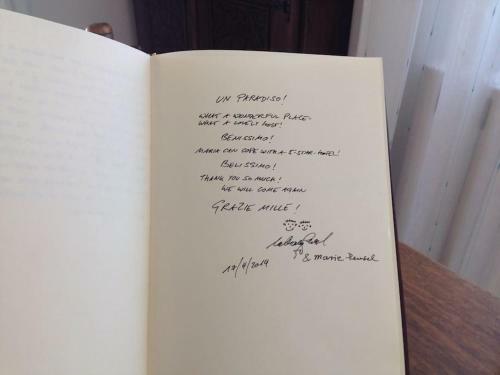 UN PARADISO!
WHAT A WONDERFUL PLACE.
WHAT A LOVELY HOST!
BENISSIMO!
MARIA CAN COPE WITH A 5-STAR-HOTEL!
BELISSIMO!
THANK YOU SO MUCH!
WE WILL COME AGAIN
GRAZIE MILLE!
& marie
/4/2019